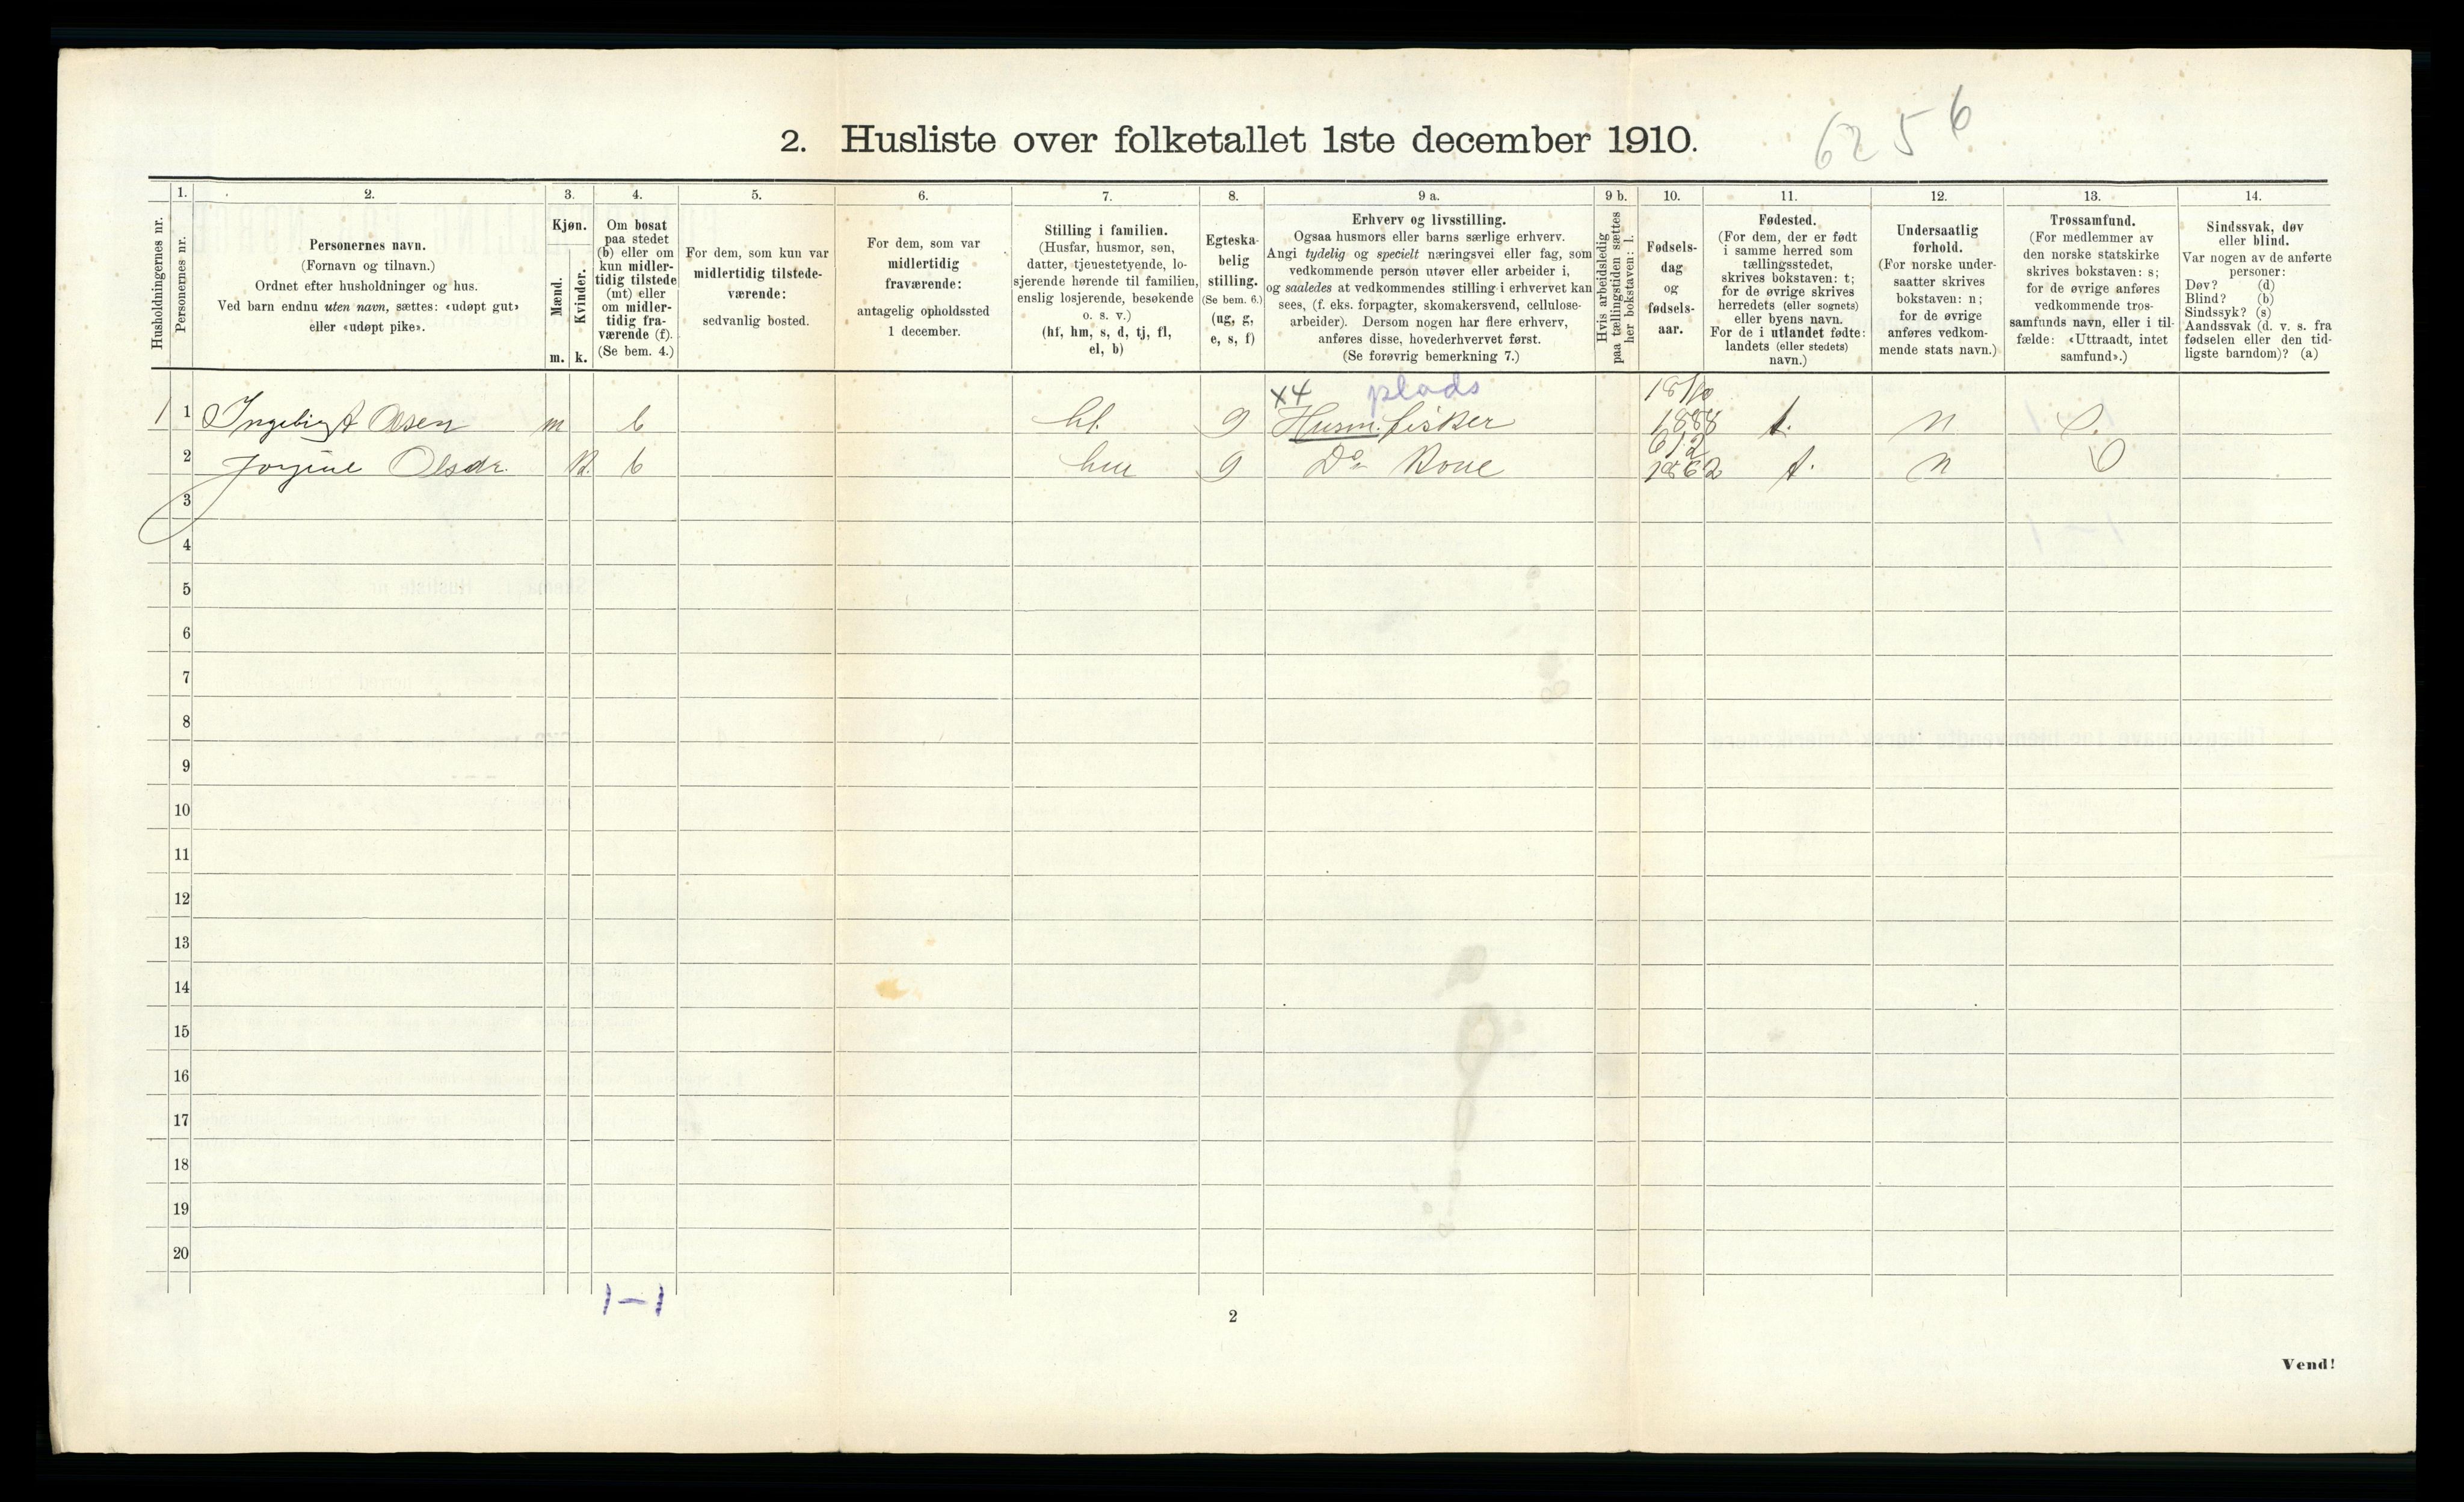 2. Husliste over folketallet 1ste december 1910.
6256
Husholdningernes nr.
1.
Personernes nr.
2.
Personernes navn.
(Fornavn og tilnavn.)
Ordnet efter husholdninger og hus.
Ved barn endnu uten navn, sættes: «udøpt gut»
eller «udøpt pike».
3.
Kjøn.
Mænd.
m.
Kvinder.
k.
4.
Om bosat
paa stedet
(b) eller om
kun midler-
tidig tilstede
(mt) eller
om midler-
tidig fra-
værende (f).
(Se bem. 4.)
5.
For dem, som kun var
midlertidig tilstede-
værende:
sedvanlig bosted.
6.
For dem, som var
midlertidig
fraværende:
antagelig opholdssted
1 december.
7.
Stilling i familien.
(Husfar, husmor, søn,
datter, tjenestetyende, lo-
sjerende hørende til familien,
enslig losjerende, besøkende
o. s. v.)
(hf, hm, s, d, tj, fl,
el, b)
8.
Egteska-
belig
stilling.
(Se bem. 6.)
(ug, g,
e, s, f)
9 a.
Erhverv og livsstilling.
Ogsaa husmors eller barns særlige erhverv.
Angi tydelig og specielt næringsvei eller fag, som
vedkommende person utøver eller arbeider i,
og saaledes at vedkommendes stilling i erhvervet kan
sees, (f. eks. forpagter, skomakersvend, cellulose-
arbeider). Dersom nogen har flere erhverv,
anføres disse, hovederhvervet først.
(Se forøvrig bemerkning 7.)
9 b.
Hvis arbeidsledig
paa tællingstiden sættes
her bokstaven: l.
10.
Fødsels-
dag
og
fødsels-
aar.
11.
Fødested.
(For dem, der er født
i samme herred som
tællingsstedet,
skrives bokstaven: t;
for de øvrige skrives
herredets (eller sognets)
eller byens navn.
For de i utlandet fødte:
landets (eller stedets)
navn.)
12.
Undersaatlig
forhold.
(For norske under-
saatter skrives
bokstaven: n;
for de øvrige
anføres vedkom-
mende stats navn.)
13.
Trossamfund.
(For medlemmer av
den norske statskirke
skrives bokstaven: s;
for de øvrige anføres
vedkommende tros-
samfunds navn, eller i til-
fælde: «Uttraadt, intet
samfund».)
14.
Sindssvak, døv
eller blind.
Var nogen av de anførte
personer:
Døv? (d)
Blind? (b)
Sindssyk? (s)
Aandssvak (d. v. s. fra
fødselen eller den tid-
ligste barndom)? (a)
x4 plads 18/10
1 1 Ingebrigt Olsen m b hf. g Husm. fisker t. n s.
6/2
2 Jorgine Olsdr. k. b hm g Do Kone 1862 t. n s
3
4
5
6
7
8
9
10
11
12
13
14
15
16
17
18
19
20
1–1
2
Vend!